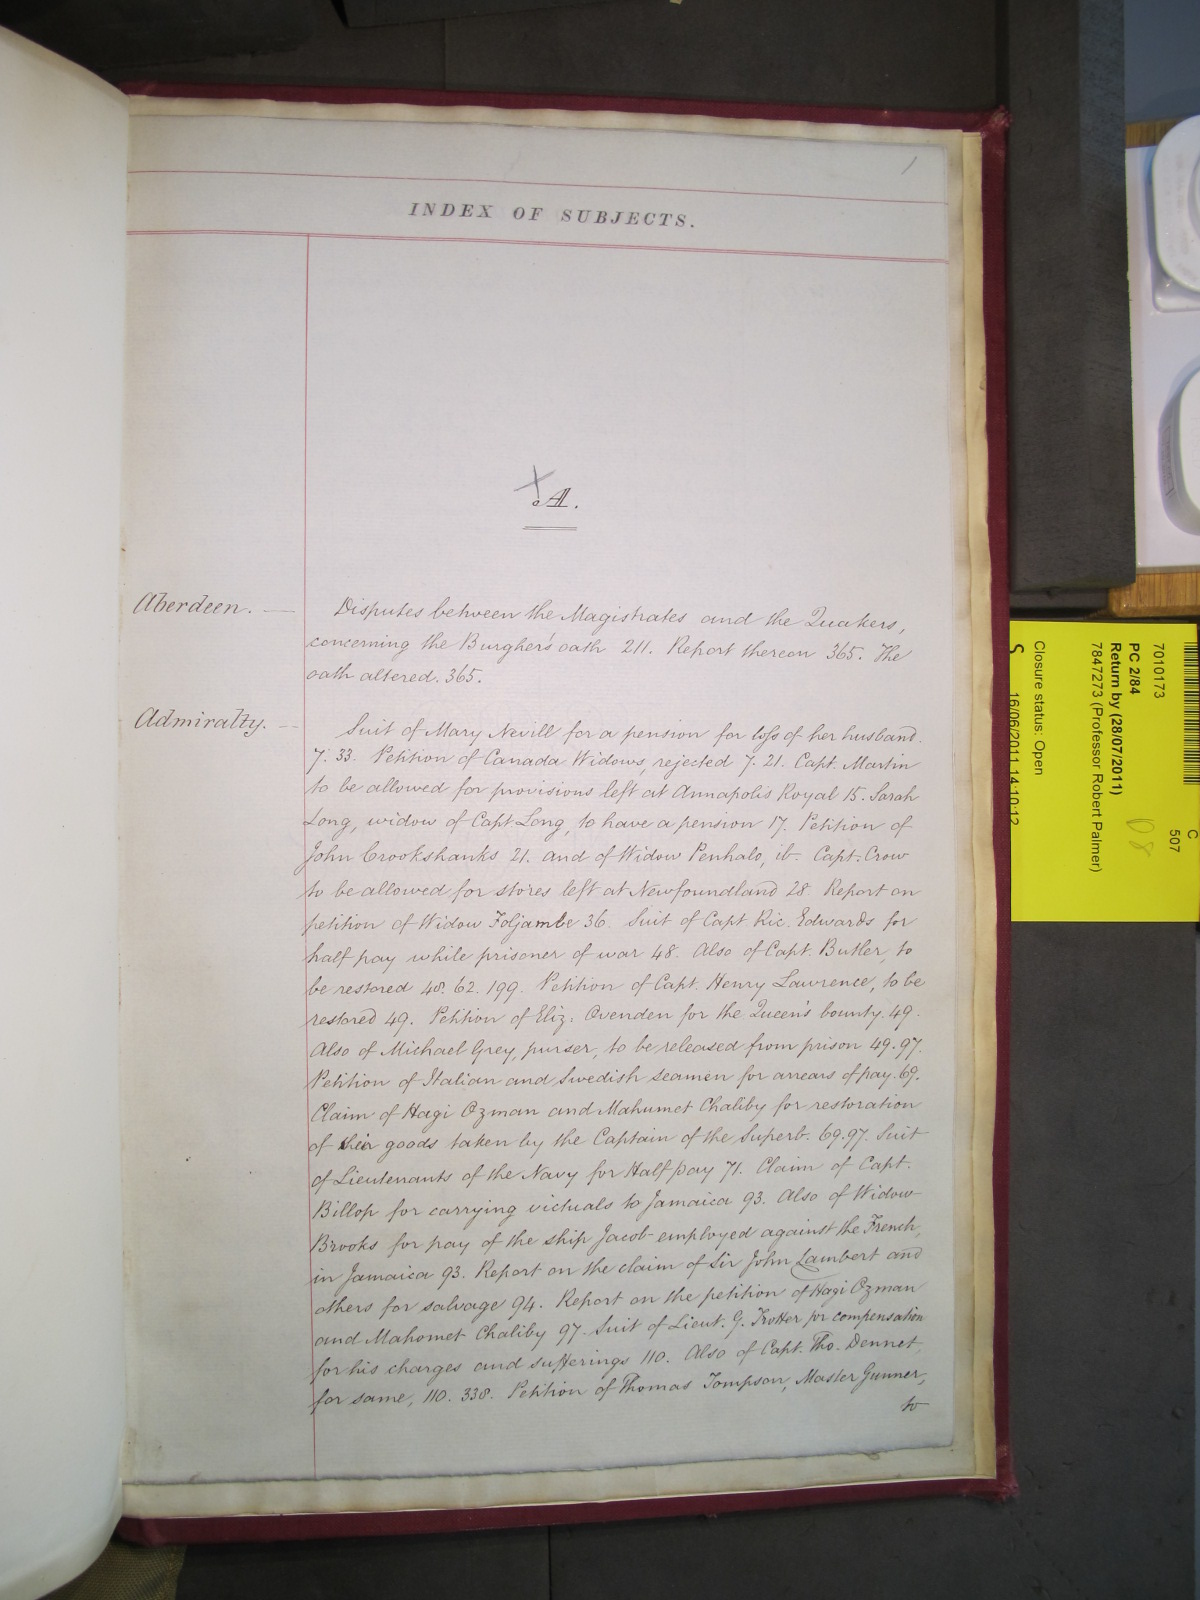 1
INDEX OF SUBJECTS.
A.
Aberdeen. —
Disputes between the Magistrates and the Quakers,
concerning the Burgher's oath 211. Report thereon 365. The
oath altered. 365.
Admiralty. —
Suit of Mary Nevill for a pension for loss of her husband.
7. 33. Petition of Canada Widows, rejected 7. 21. Capt. Martin
to be allowed for provisions left at Annapolis Royal 15. Sarah
Long, widow of Capt Long, to have a pension 17. Petition of
John Crookshanks 21. and of Widow Penhalo, ib. Capt. Crow
to be allowed for stores left at Newfoundland 28. Report on
petition of Widow Foljambe 36. Suit of Capt Ric. Edwards for
half pay while prisoner of war 48. Also of Capt. Butler, to
be restored 48. 62. 199. Petition of Capt. Henry Lawrence, to be
restored 49. Petition of Eliz: Ovenden for the Queen's bounty. 49.
Also of Michael Grey, purser, to be released from prison 49. 97.
Petition of Italian and Swedish Seamen for arrears of pay. 69.
Claim of Hagi Ozman and Mahumet Chaliby for restoration
of their goods taken by the Captain of the Superb. 69. 97. Suit
of Lieutenants of the Navy for Half pay 71. Claim of Capt.
Billop for carrying victuals to Jamaica 93. Also of Widow
Brooks for pay of the ship Jacob employed against the French,
in Jamaica 93. Report on the claim of Sir John Lambert and
others for salvage 94. Report on the petition of Hagi Ozman
and Mahomet Chaliby 97. Suit of Lieut. G. Trotter for compensation
for his charges and sufferings 110. Also of Capt. Tho. Dennet,
for same, 110. 338. Petition of Thomas Tompson, Master Gunner,
to
C
507
7010173
PC 2/84
Return by (28/07/2011)
7847273 (Professor Robert Palmer)
Closure status: Open
S 16/06/2011 14:10:12